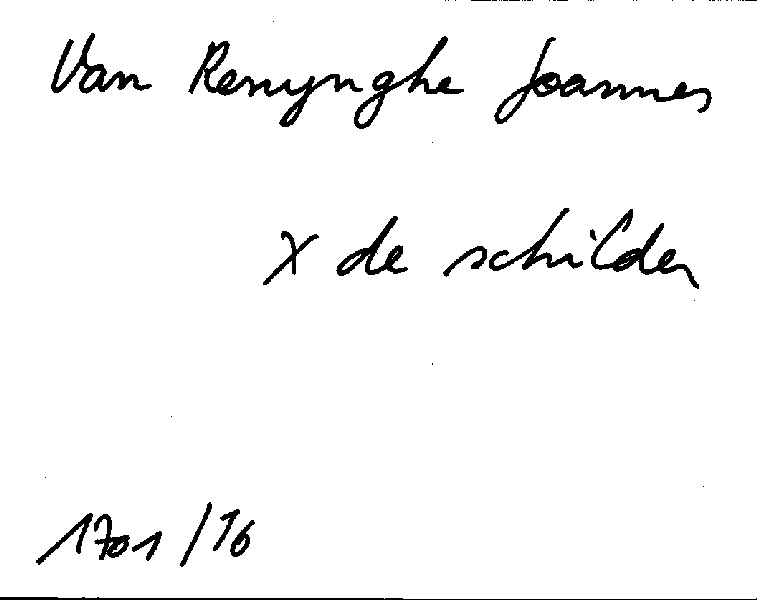 Van Renynghe Joannes
X de schilder
1701/16